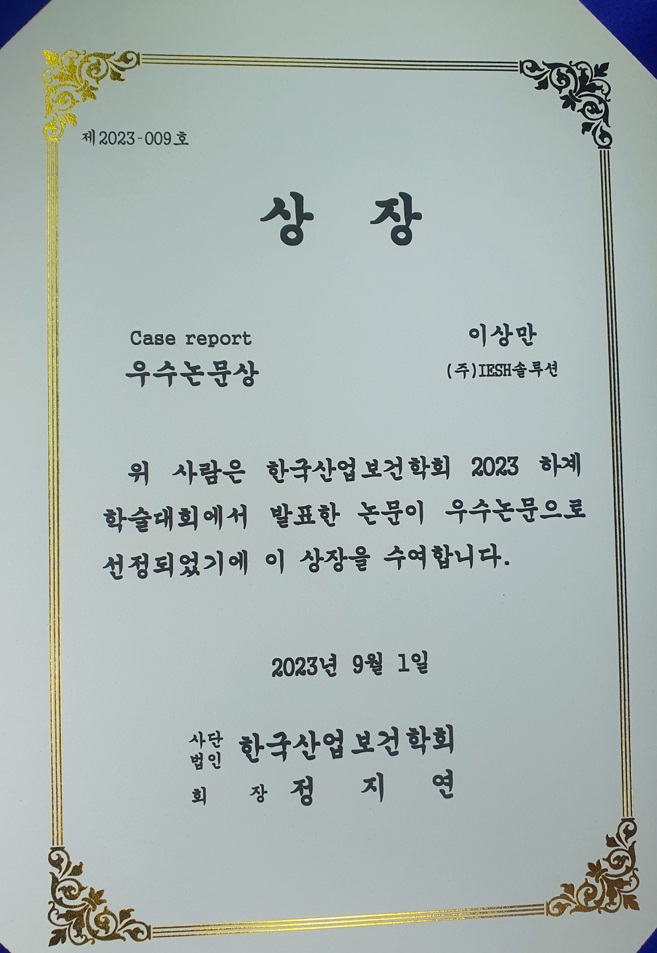 제2023-009호
상 장
Case report 이상만
우수논문상 (주)IESH솔루션
위 사람은 한국산업보건학회 2023 하계
학술대회에서 발표한 논문이 우수논문으로
선정되었기에 이 상장을 수여합니다.
2023년 9월 1일
사단법인 한국산업보건학회
회 장 정 지 연